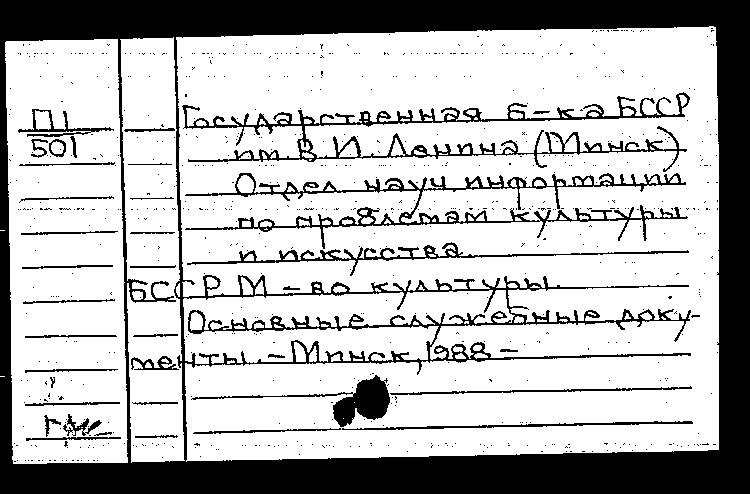 П1
501
Государственная б-ка БССР
им В. И. Ленина (Минск)
Отдел науч информации
по проблемам культуры
и искусства
БССР. М-во культуры.
Основные служебные доку-
менты. - Минск, 1988 -